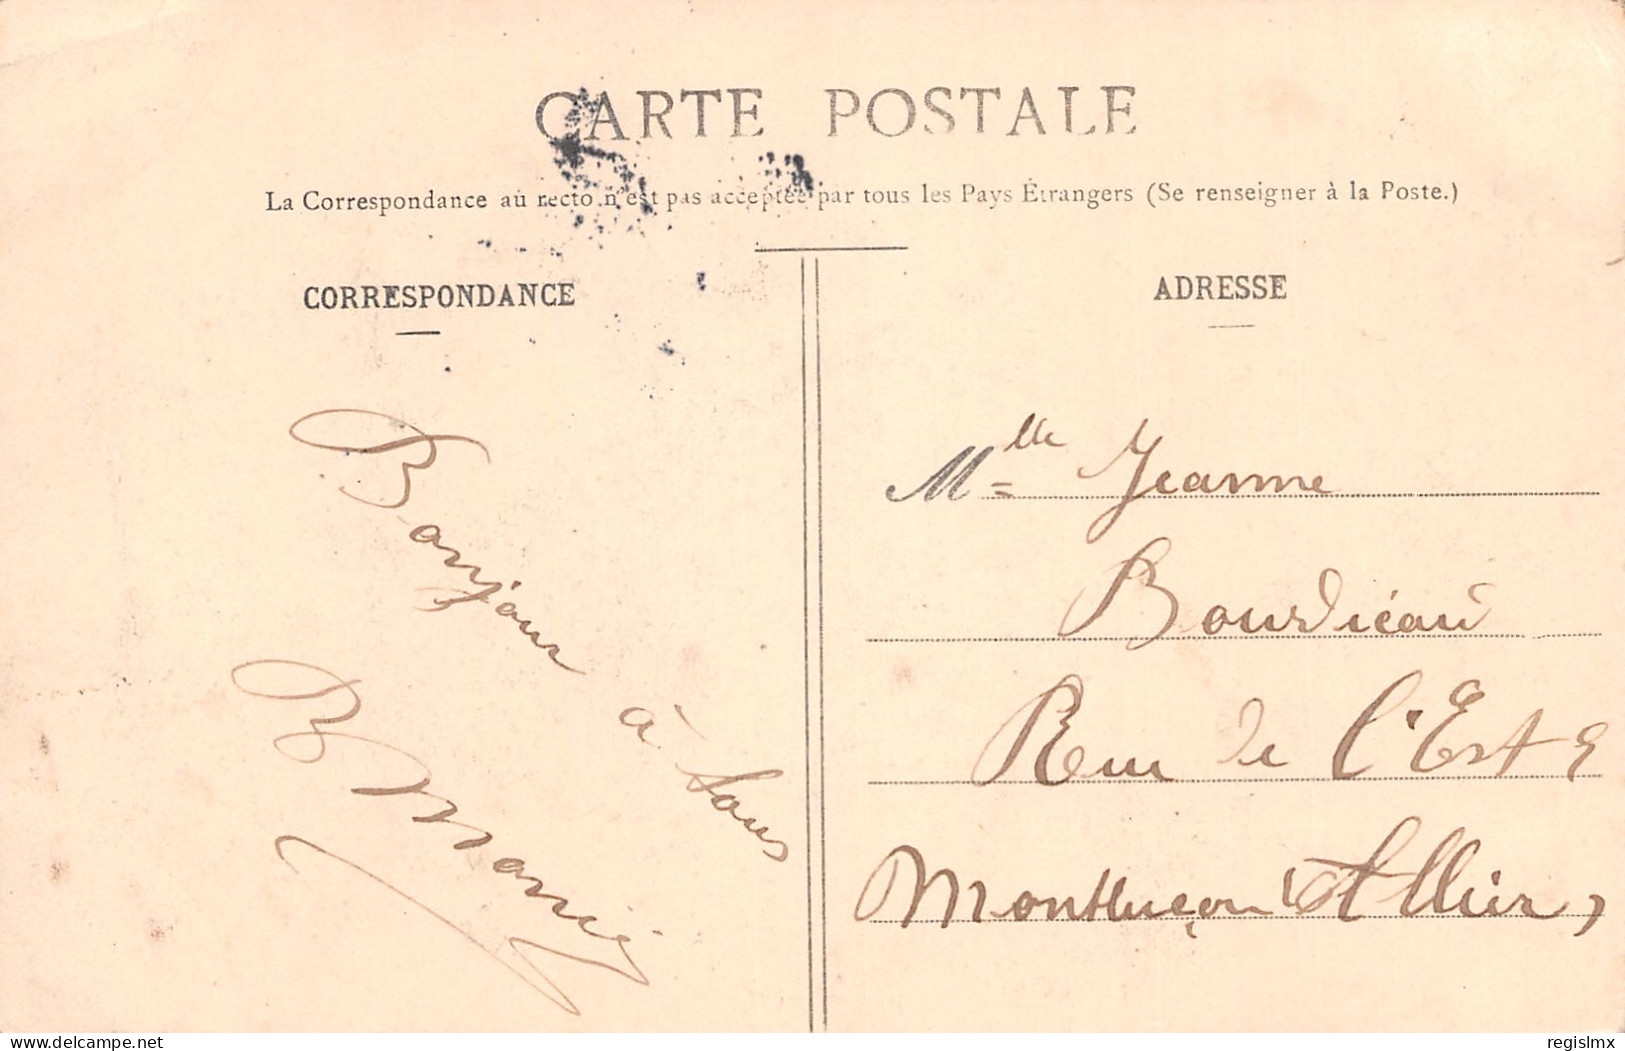 CARTE POSTALE
La Correspondance au recto n'est pas acceptée par tous les Pays Étrangers (Se renseigner à la Poste.)
CORRESPONDANCE
Bonjour
à tous
B
ADRESSE
Mlle Jeanne
Bourdieau
Rue de l'Est 9
Montluçon (Allier)
delcampe.net
regislmx